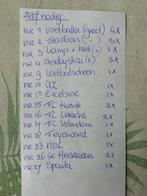 237 nodig:
nr 1 voetballer (goed) 4x
nr 2 stadion 3x
nr 3 1x
nr 4 derbystar 3x
nr 9 voetbalschoen 1x
nr 12 AZ 1x
nr 13 Excelsior 1x
nr 15 FC Twente 1x
nr 16 FC Utrecht 2x
nr 17 FC Volendam 1x
nr 18 Feyenoord 1x
nr 23 NEC 1x
nr 26 SC Heerenveen 2x
nr 27 Sparta 1x